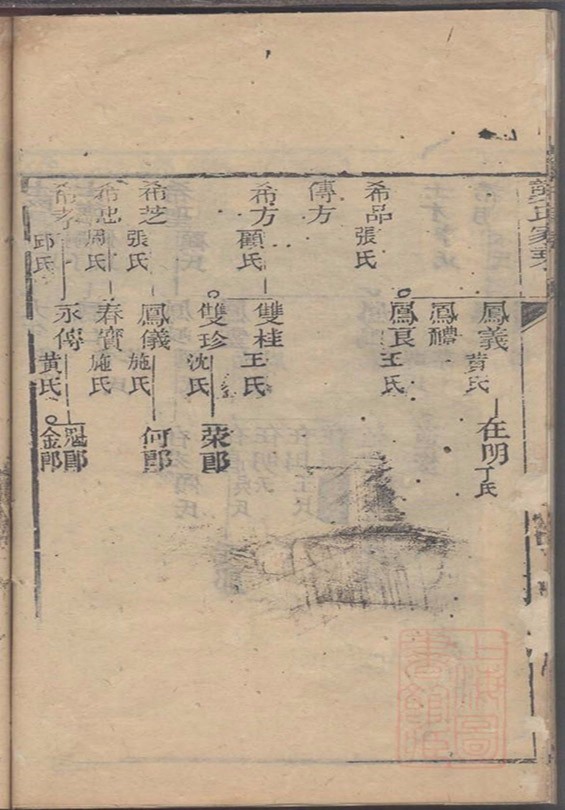 鳳義
黃氏
在明
丁氏
鳳禮
鳳良
王氏
希品
張氏
傳方
希方
顧氏
雙桂
王氏
雙珍
沈氏
榮郎
希芝
張氏
鳳儀
施氏
何郎
希忠
周氏
春寶
施氏
希孝
邱氏
永傳
黃氏
冠郎
金郎
上海圖
書館藏